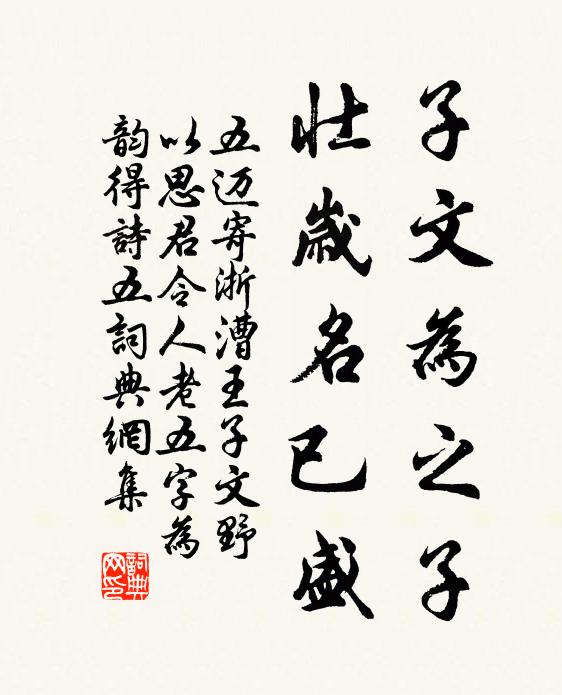 子文為之子
壮歲名已盛
五迈寄浙漕王子文野
以思君令人老五字為
韵得詩五詞典網集
詞典
网印